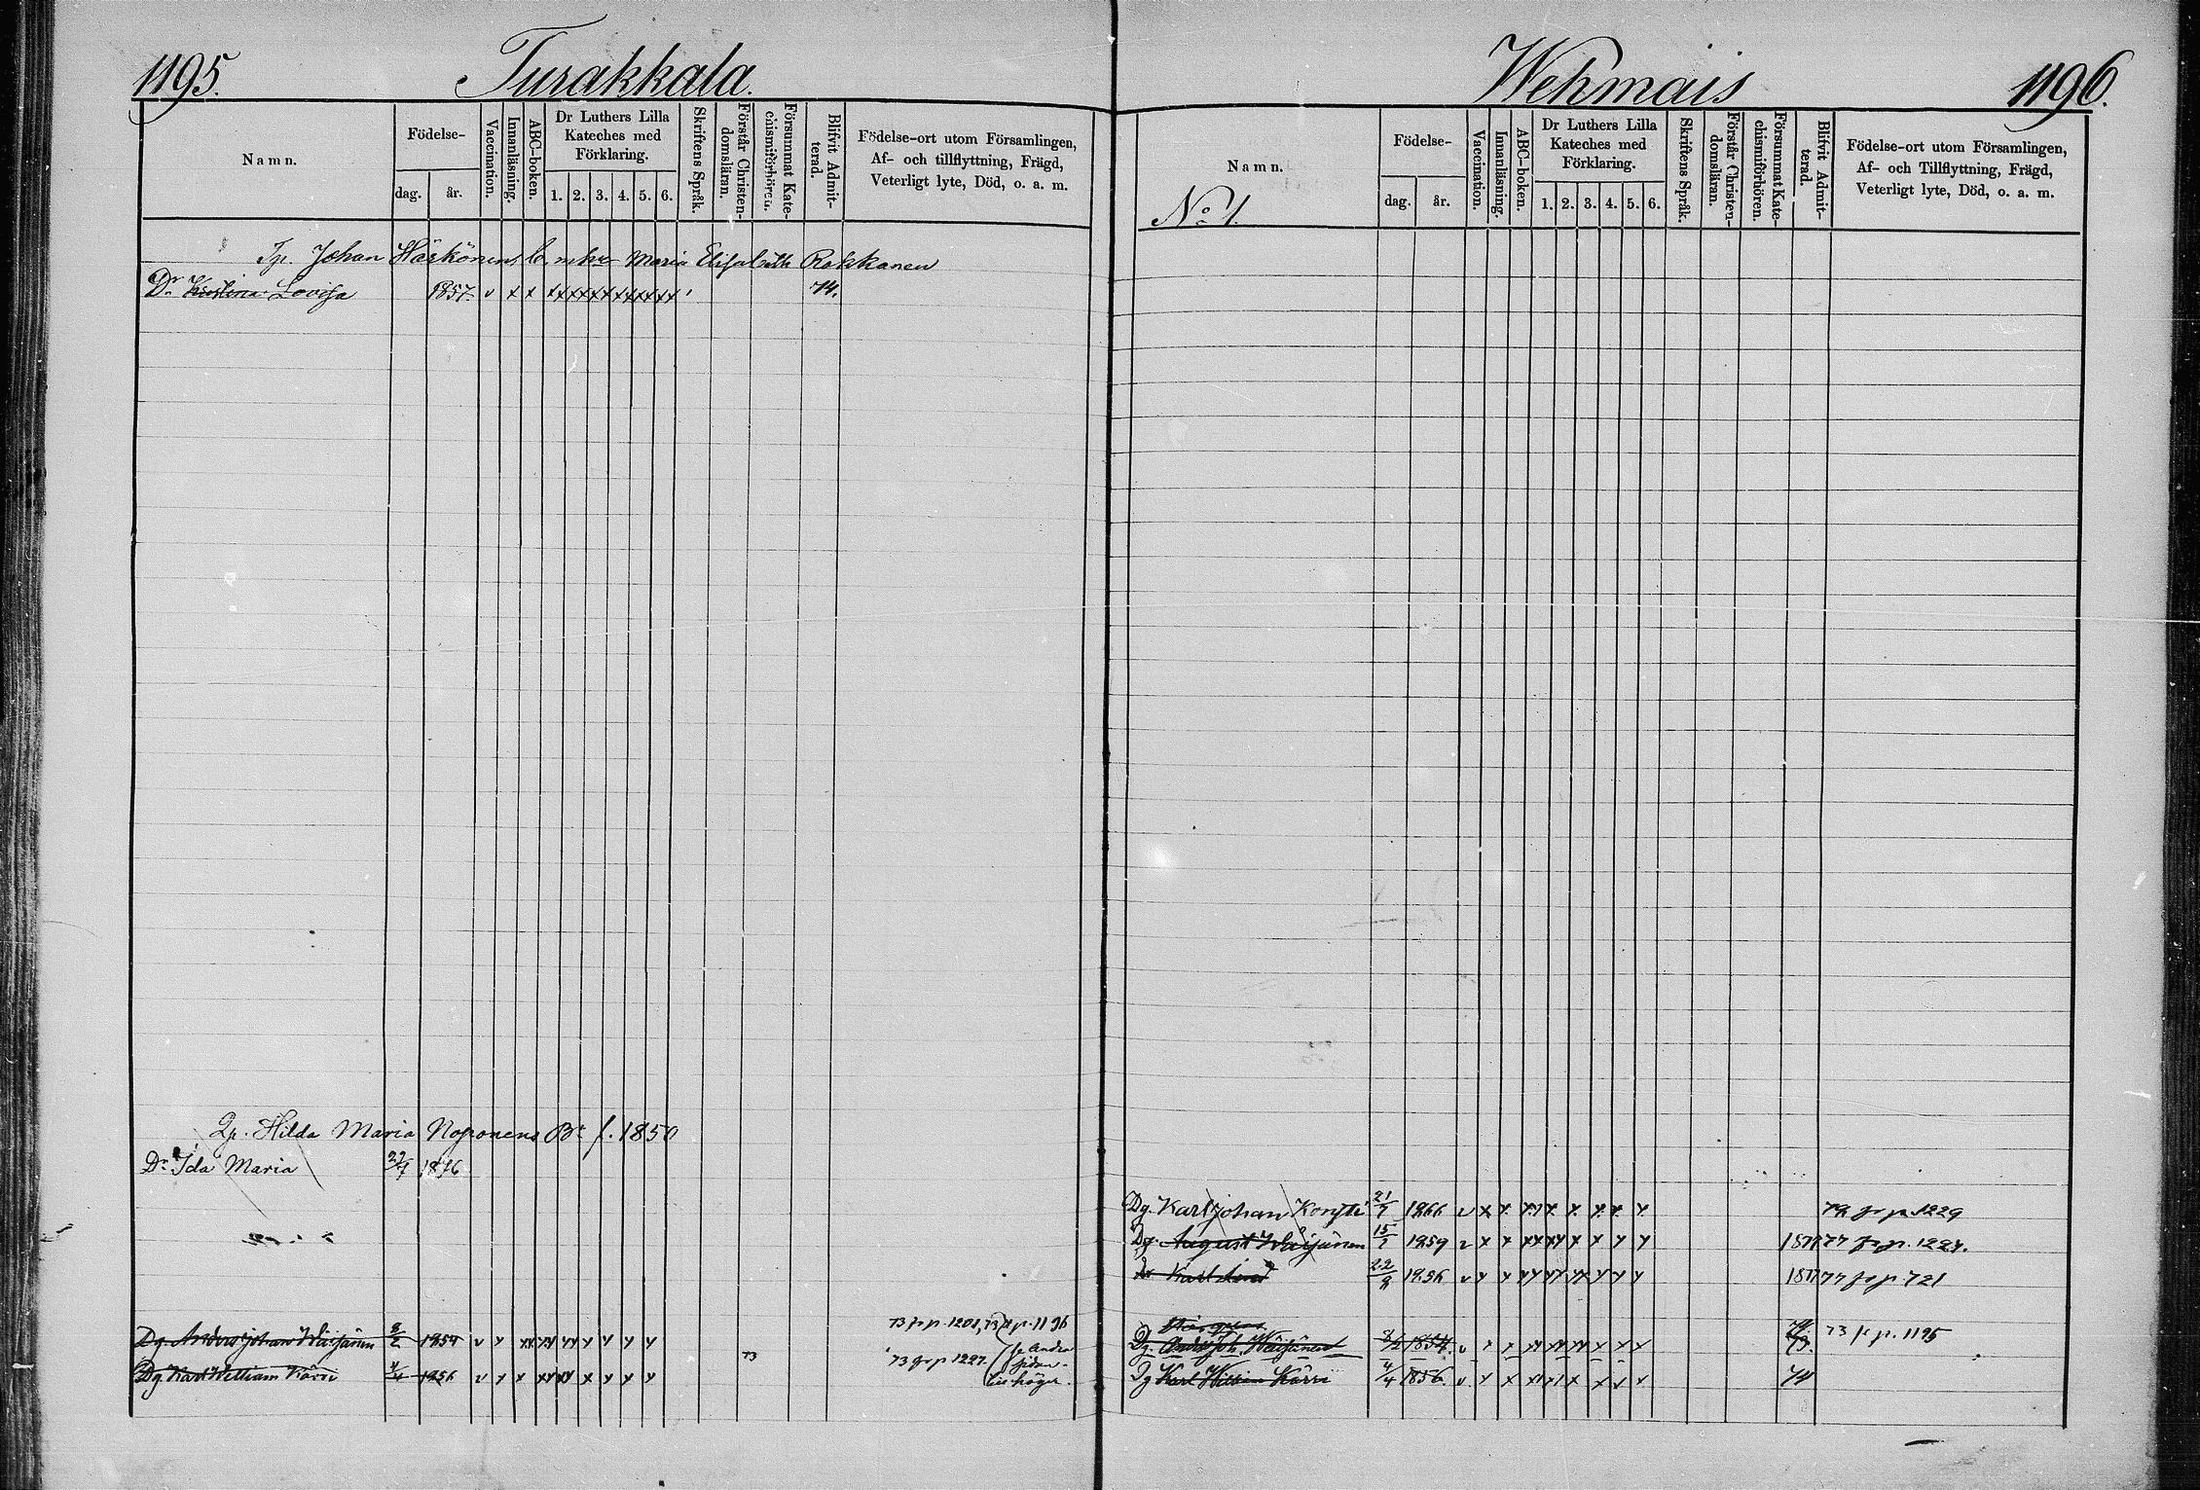 1195.
Turakkala.
Namn.
Födelse-
dag.
år.
Vaccination.
Innanläsning.
ABC-boken.
Dr Luthers Lilla
Kateches med
Förklaring.
1. 2. 3. 4. 5. 6.
Skriftens Språk.
Förstår Christen-
domsläran.
Försummat Kate-
chismiförhören.
Blifvit Admit-
terad.
Födelse-ort utom Församlingen,
Af- och tillflyttning, Frägd,
Veterligt lyte, Död, o. a. m.
Johan Härkönens Maria Elisabeth Rokkanen
Dr Kristina Lovisa 1857. v x x 74.
Hilda Maria Noponens f. 1850
Dr Ida Maria 1876
73 p. 1201, 73 p. 1196
Dg. Anders Johan Wäisänen 8/2 1854 v
73 73 p 1227.
Dg Karl William Kärri 4/4 1856 v
Wehmais
1196.
Namn.
No 1.
Födelse-
dag.
år.
Vaccination.
Innanläsning.
ABC-boken.
Dr Luthers Lilla
Kateches med
Förklaring.
1. 2. 3. 4. 5. 6.
Skriftens Språk.
Förstår Christen-
domsläran.
Försummat Kate-
chismiförhören.
Blifvit Admit-
terad.
Födelse-ort utom Församlingen,
Af- och Tillflyttning, Frägd,
Veterligt lyte, Död, o. a. m.
Dg. Karl Johan 1866 v x x p. 1229
Dg. August Wäisänen 1859 v x x 1877 77 p. 1224.
Karl 22/8 1856 v 1877 77 p. 721
Dg. And. Joh. Wäisänen 8/2 1854. v 73. 73 p. 1195
Dg Karl William Kärri 4/4 1856. v 74